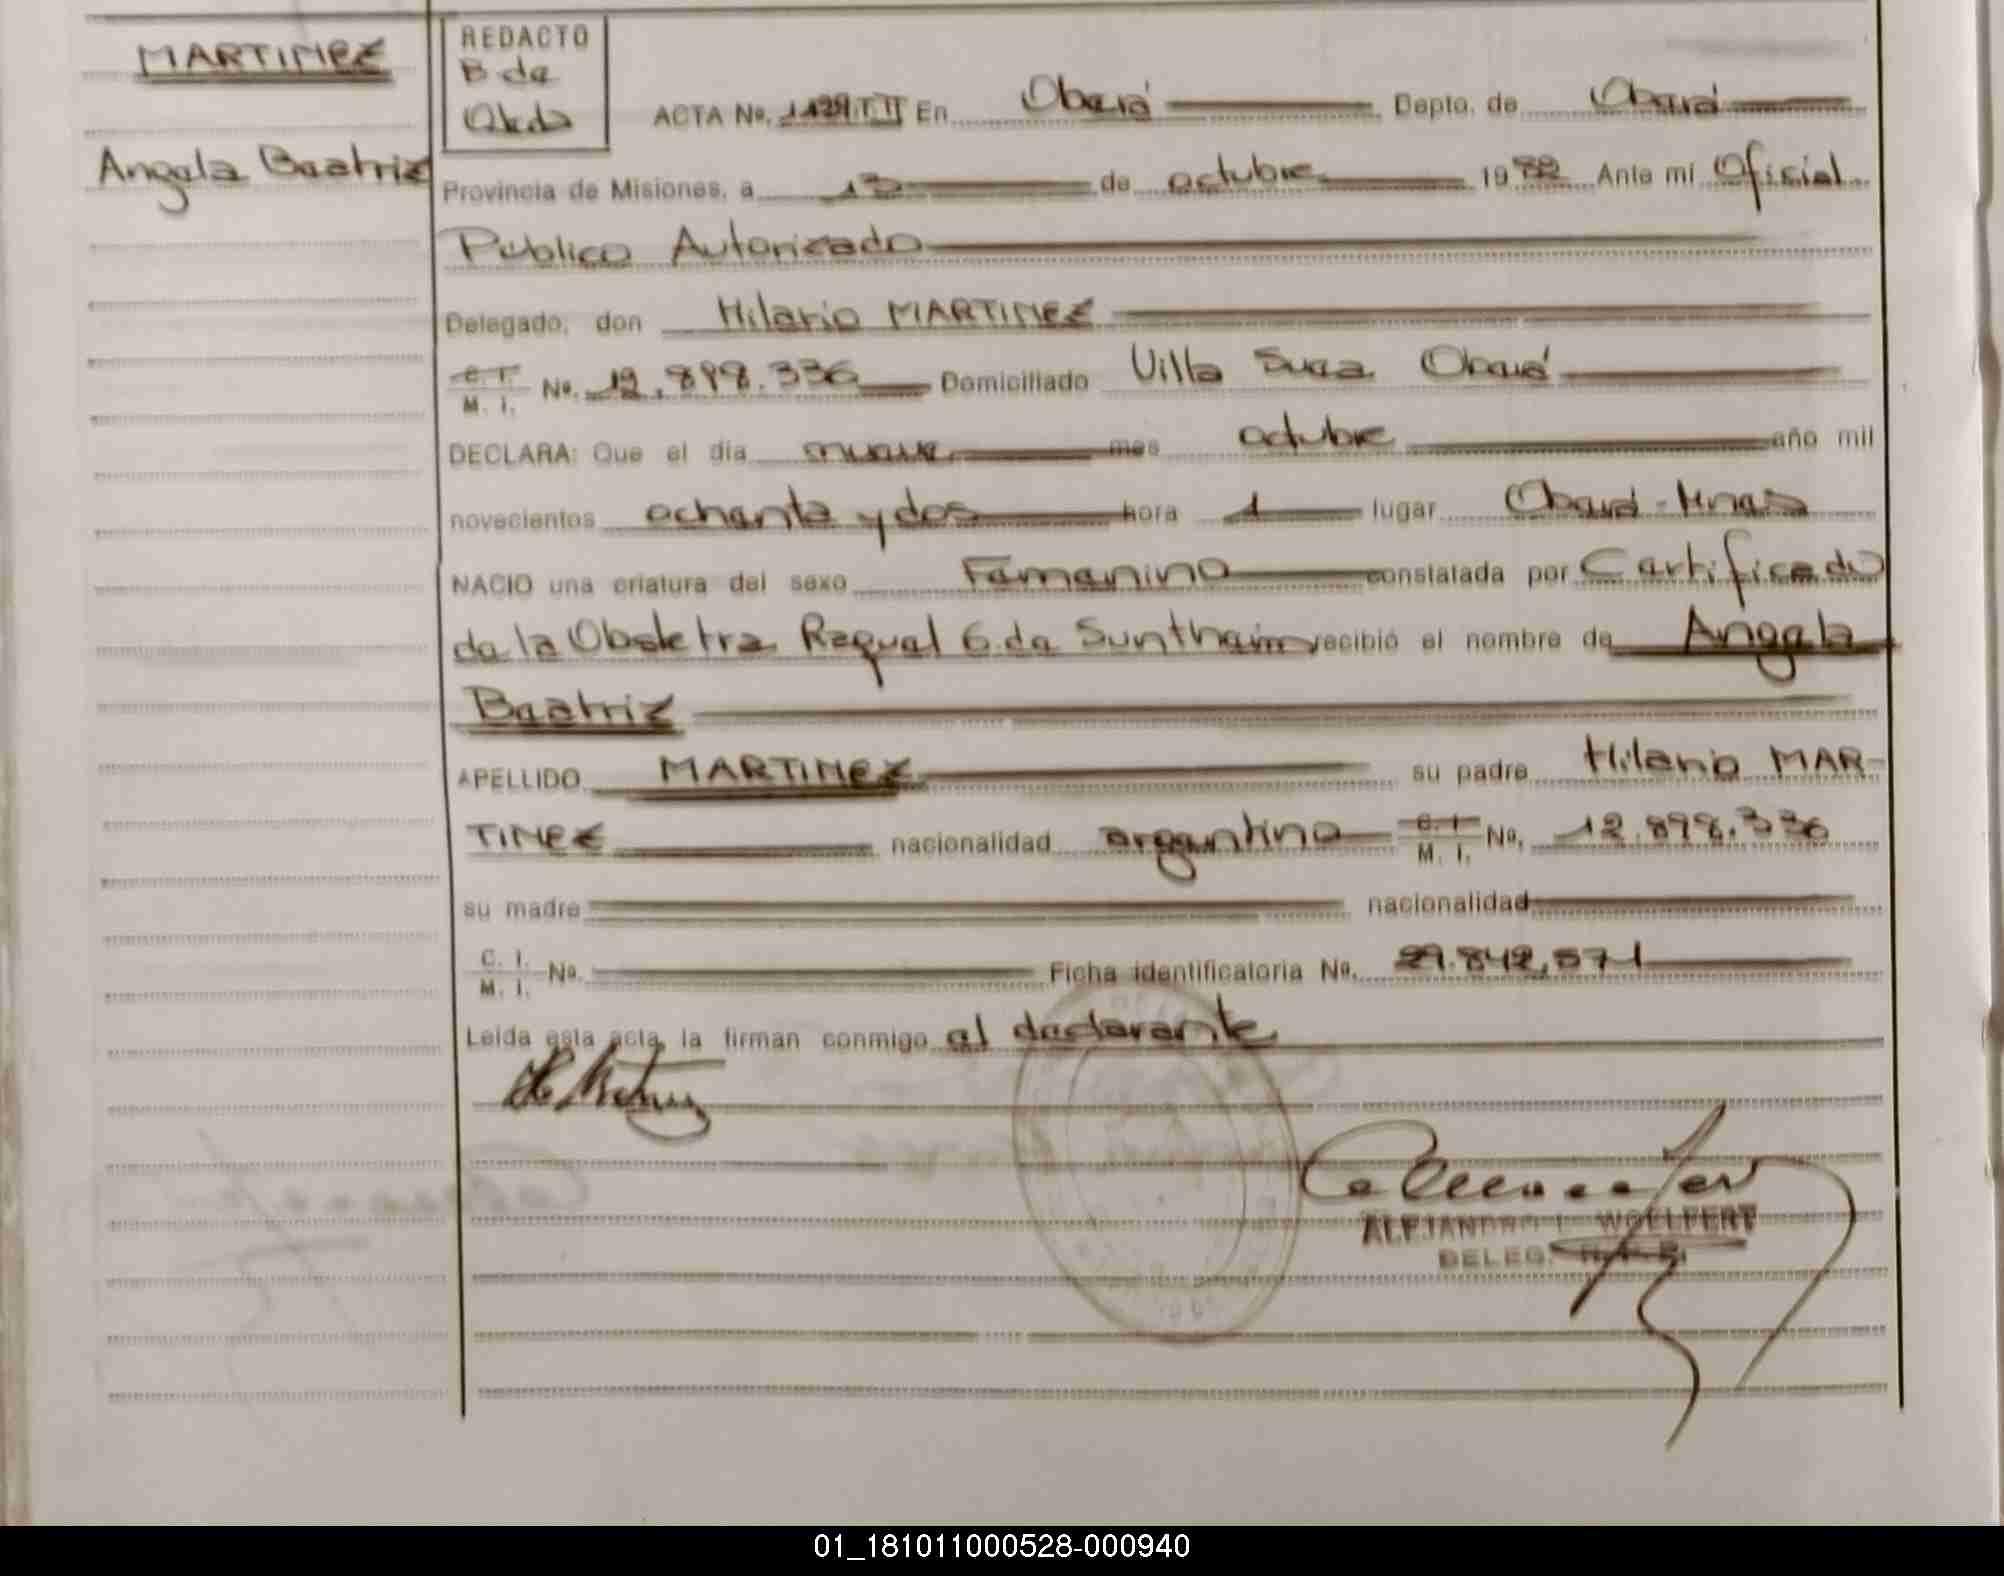 MARTINEZ
Angela Beatriz
REDACTO
B de
Oleda
ACTA No. 1429 T. II En Oberá Depto. de Oberá
Provincia de Misiones, a 13 de octubre 1982 Ante mí Oficial
Público Autorizado
Delegado, don Hilario MARTINEZ
C. I. M. I. No. 12.898.336 Domiciliado Villa Svea Oberá
DECLARA: Que el día nueve mes octubre año mil
novecientos ochenta y dos hora 1 lugar Oberá - Mnes
NACIO una criatura del sexo Femenino constatada por Certificado
de la Obstetra Raquel G. de Sunthein recibió el nombre de Angela
Beatriz
APELLIDO MARTINEZ su padre Hilario MAR-
TINEZ nacionalidad argentino C. I. M. I. No. 12.898.336
su madre nacionalidad
C. I. M. I. No. Ficha identificatoria No. 29.842.571
Leída esta acta, la firman conmigo el declarante
ALEJANDRO L. WOELFERT
DELEG. R.P.P.
01_181011000528-000940